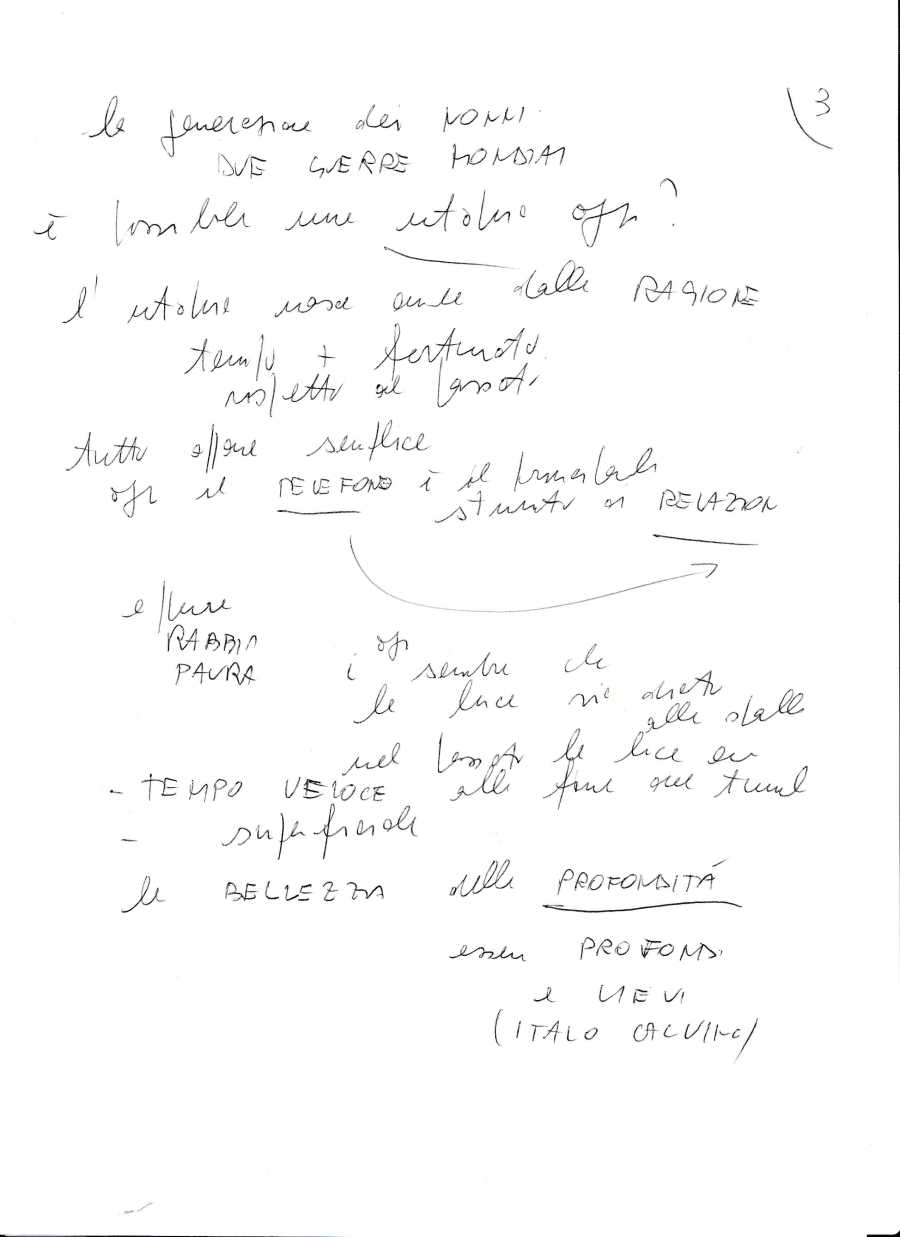 3
la generazione dei NONNI
DUE GUERRE MONDIAI
è possibile una utopia oggi?
l'utopia nasce anche dalla RAGIONE
tempo + fortunato
rispetto al passato
tutto appare semplice
oggi il TELEFONO è il principale
strumento di RELAZION
eppure
RABBIA
PAURA
oggi
sembra che
la luce sia dietro
alle spalle
nel passato la luce era
- TEMPO VELOCE alla fine del tunnel
- superficiale
la BELLEZZA della PROFONDITÁ
essere PROFONDI
e LIEVI
(ITALO CALVINO)